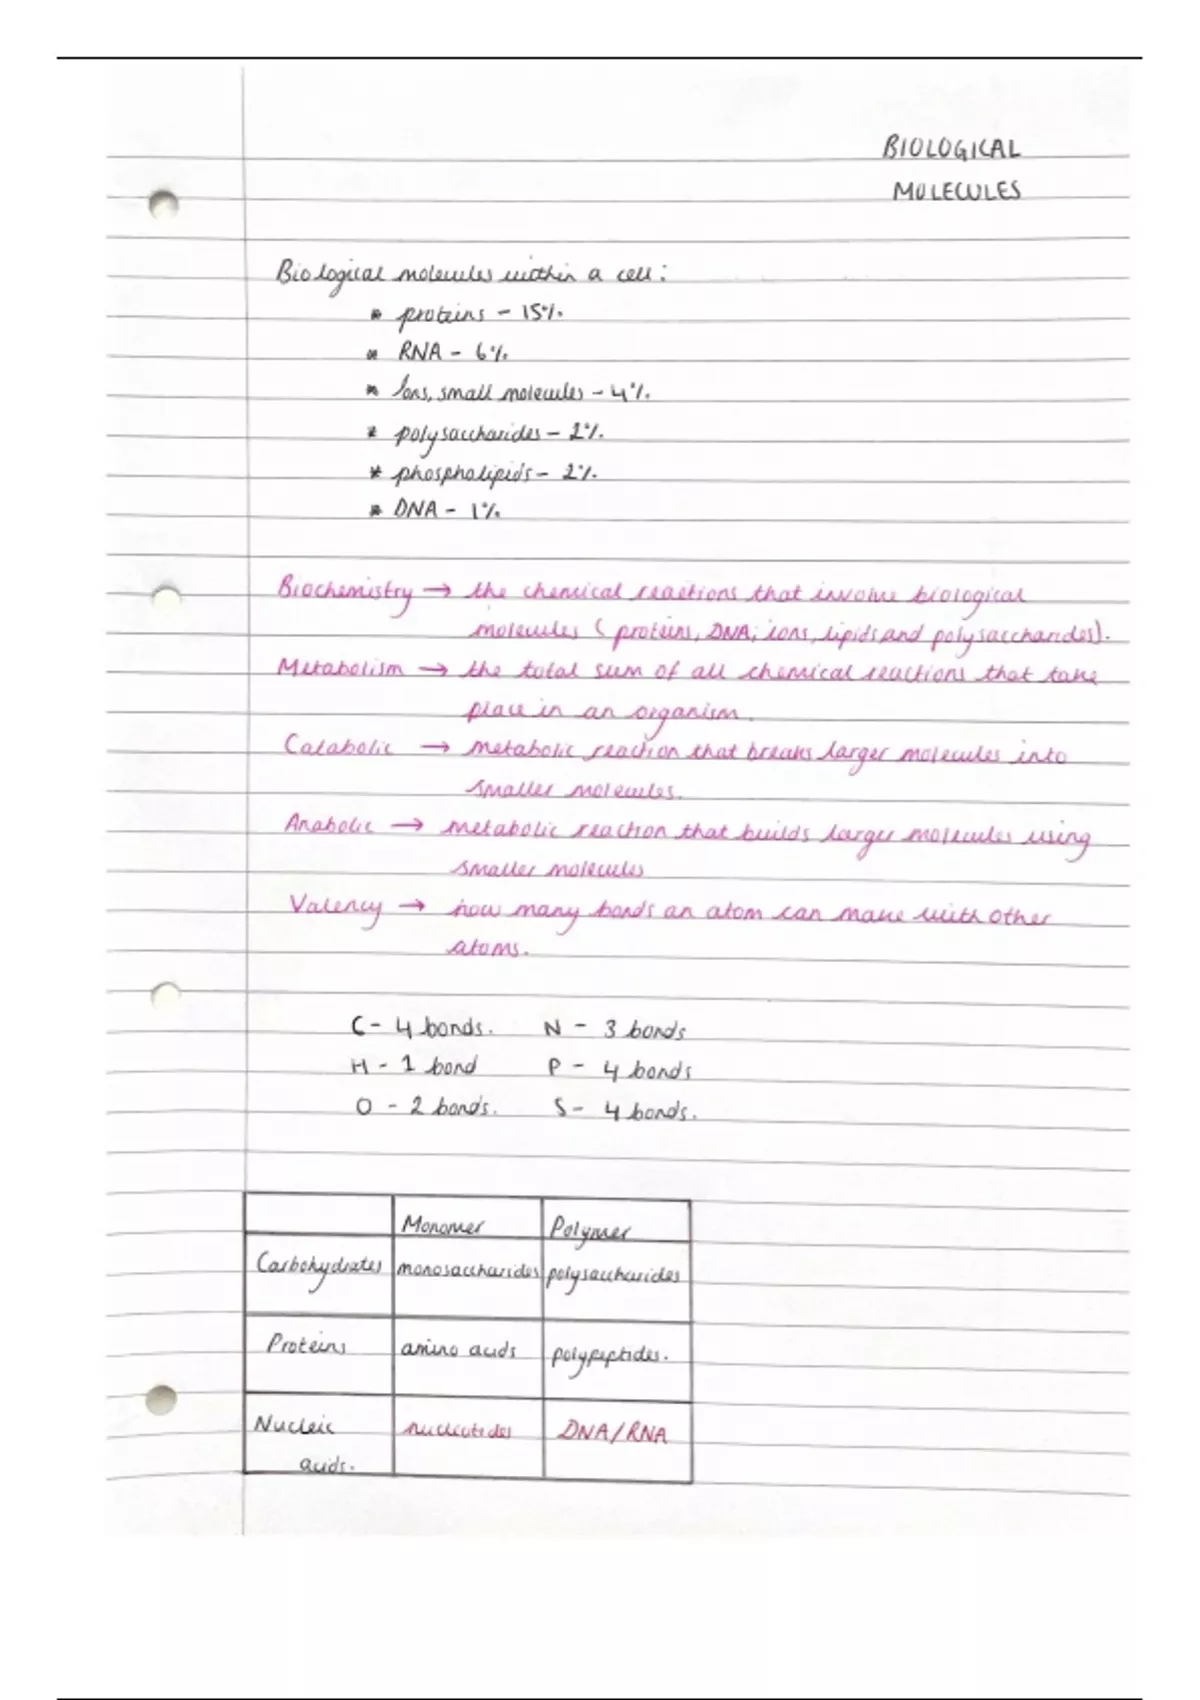 BIOLOGICAL
MOLECULES
Biological molecules within a cell:
* proteins - 15%.
* RNA - 6%.
* Ions, small molecules - 4%.
* polysaccharides - 2%.
* phospholipids - 2%.
* DNA - 1%.
Biochemistry → the chemical reactions that involve biological
molecules (proteins, DNA, ions, lipids and polysaccharides).
Metabolism → the total sum of all chemical reactions that take
place in an organism.
Catabolic → metabolic reaction that breaks larger molecules into
smaller molecules.
Anabolic → metabolic reaction that builds larger molecules using
smaller molecules
Valency → how many bonds an atom can make with other
atoms.
C - 4 bonds. N - 3 bonds
H - 1 bond P - 4 bonds
O - 2 bonds. S - 4 bonds.
Monomer Polymer
Carbohydrates monosaccharides polysaccharides
Proteins amino acids polypeptides.
Nucleic nucleotides DNA/RNA
acids.